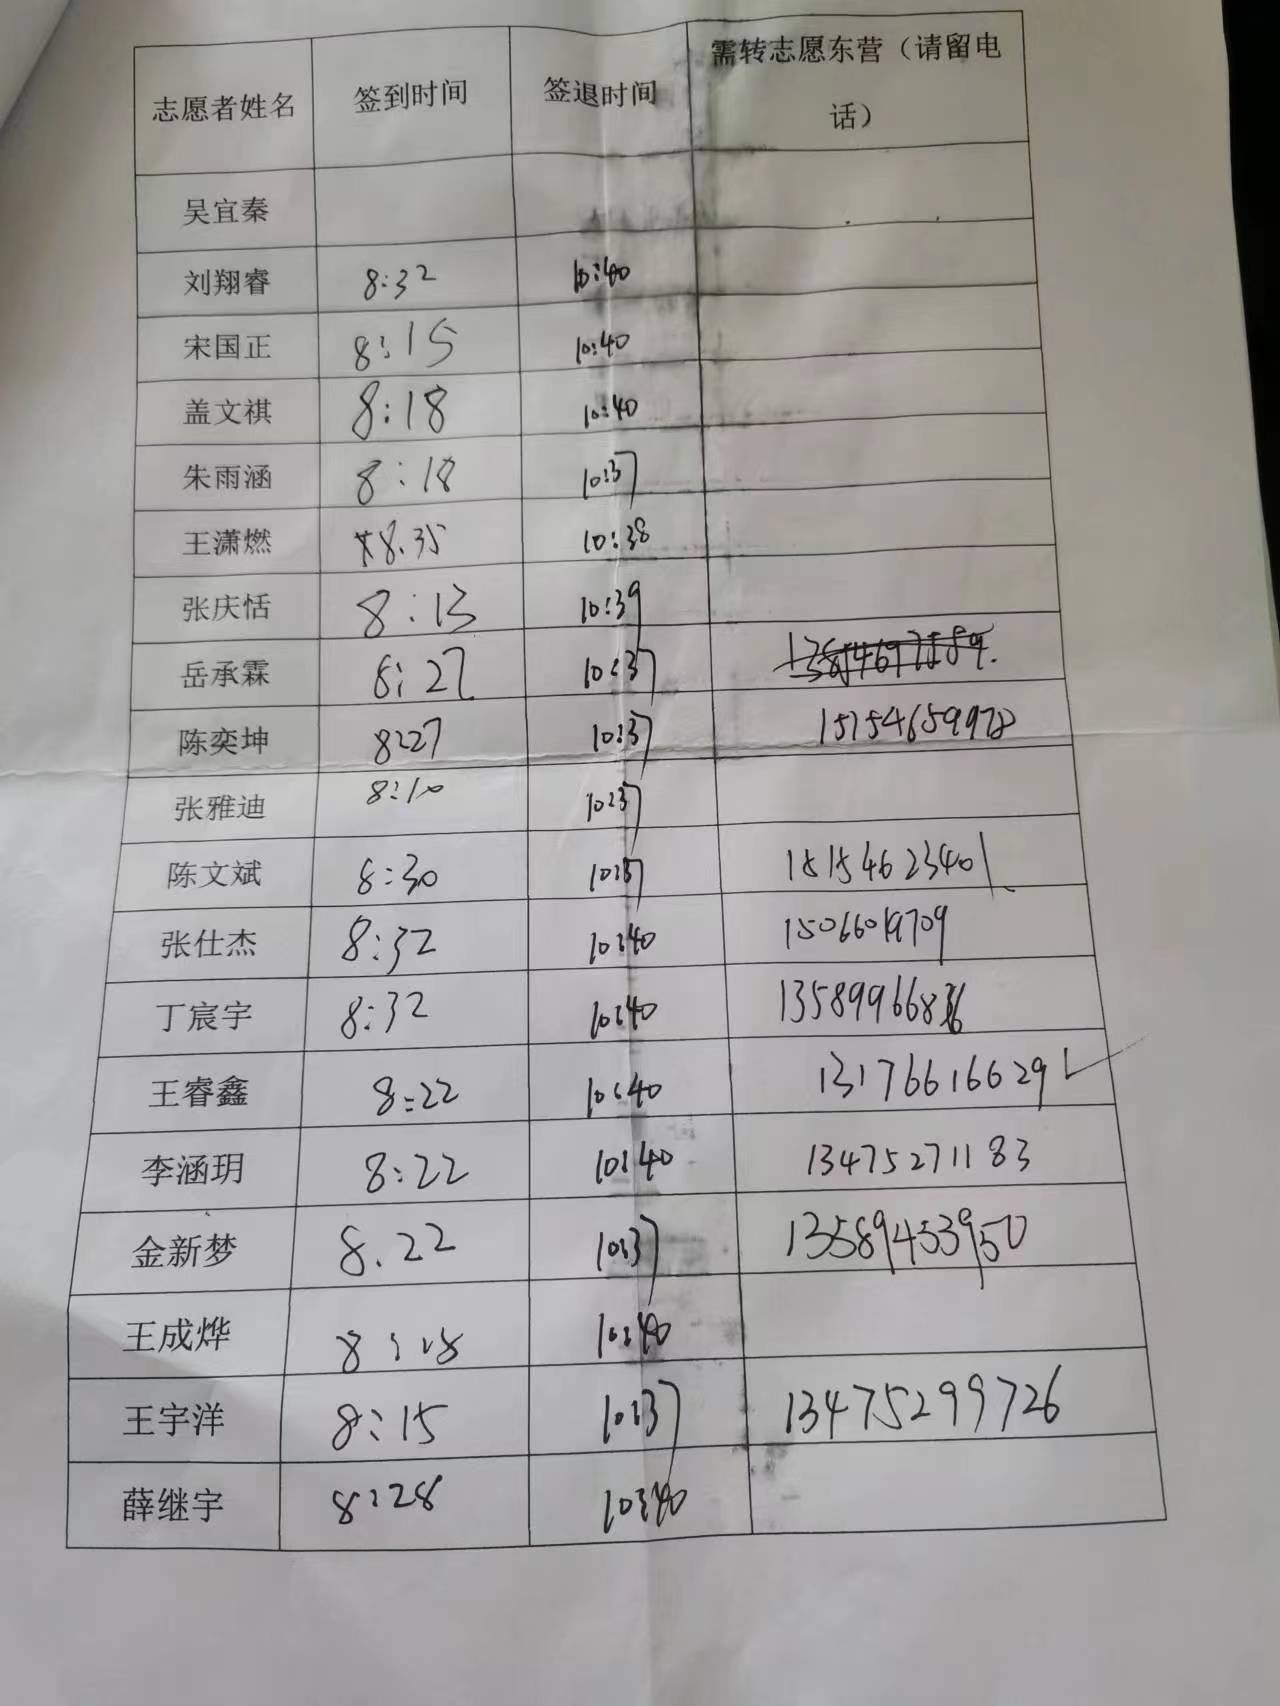 志愿者姓名 签到时间 签退时间 需转志愿东营（请留电话）
吴宜秦
刘翔睿 8:32 10:40
宋国正 8:15 10:40
盖文祺 8:18 10:40
朱雨涵 8:18 10:37
王潇燃 8.35 10:38
张庆恬 8:13 10:39
岳承霖 8:27 10:37
陈奕坤 8:27 10:37 15154659978
张雅迪 8:10 10:37
陈文斌 8:30 10:37 15154623401
张仕杰 8:32 10:40 15066019709
丁宸宇 8:32 10:40
王睿鑫 8:22 10:40 13176616629
李涵玥 8:22 10:40 13475271183
金新梦 8.22 10:37 13589453950
王成烨 10:40
王宇洋 8:15 10:37 13475299726
薛继宇 8:28 10:40